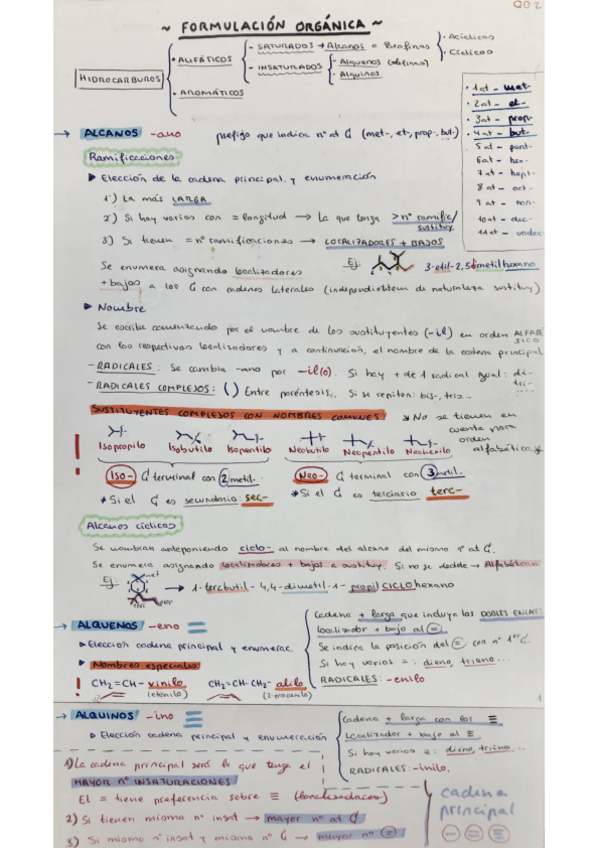 ~ FORMULACIÓN ORGÁNICA ~
HIDROCARBUROS
• ALIFÁTICOS
- SATURADOS → Alcanos o Parafinas
• Acíclicos
• Cíclicos
- INSATURADOS
- Alquenos (olefinas)
- Alquinos
• AROMÁTICOS
• 1 at - met-
• 2 at - et-
• 3 at - prop-
• 4 at - but-
5 at - pent-
6 at - hex-
7 at - hept-
8 at - oct-
9 at - non-
10 at - dec-
11 at - undec-
→ ALCANOS -ano prefijo que indica nº at C (met-, et-, prop-, but-)
Ramificaciones
▸ Elección de la cadena principal y enumeración
1º) La más LARGA
2º) Si hay varias con = longitud → La que tenga > nº ramific/
sustituy
3) Si tienen = nº ramificaciones → LOCALIZADORES + BAJOS
Se enumera asignando localizadores Ej: 3-etil-2,5dimetilhexano
+ bajos a los C con cadenas laterales (independientem de naturaleza sustituy).
▸ Nombre
Se escribe comenzando por el nombre de los sustituyentes (-il) en orden ALFABÉ
TICO
con los respectivos localizadores y a continuación, el nombre de la cadena principal
- RADICALES: Se cambia -ano por -il(o). Si hay + de 1 radical igual: di-
tri-
- RADICALES COMPLEJOS: ( ) Entre paréntesis. Si se repiten: bis-, tris...
SUSTITUYENTES COMPLEJOS CON NOMBRES COMUNES: * No se tienen en
cuenta para
orden
alfabético *
Isopropilo Isobutilo Isopentilo Neobutilo Neopentilo Neohexilo
Iso- C terminal con 2 metil. Neo- C terminal con 3 metil.
* Si el C es secundario: sec- * Si el C es terciario terc-
Alcanos cíclicos
Se nombran anteponiendo ciclo- al nombre del alcano del mismo nº at C.
Se enumera asignando localizadores + bajos a sustituy. Si no se decide → Alfabético
Ej: met → 1-tercbutil-4,4-dimetil-1-propilCICLOhexano
→ ALQUENOS -eno =
▸ Elección cadena principal y enumerac.
▸ Nombres especiales
CH₂=CH- vinilo CH₂=CH-CH₂- alilo
(etenilo) (2-propenilo)
Cadena + larga que incluya los DOBLES ENLAC.
Localizador + bajo al =.
Se indica la posición del = con nº 1er C.
Si hay varios =: dieno, trieno...
RADICALES: -enilo
1
→ ALQUINOS -ino ≡
▸ Elección cadena principal y enumeración
Cadena + larga con los ≡
Localizador + bajo al ≡
Si hay varios ≡: diino, triino...
RADICALES: -inilo.
1) La cadena principal será la que tenga el
MAYOR nº INSATURACIONES
El = tiene preferencia sobre ≡ (localizadores)
2) Si mismo nº insat → mayor nº at C
3) Si mismo nº insat y mismo nº C → mayor nº =
cadena
principal